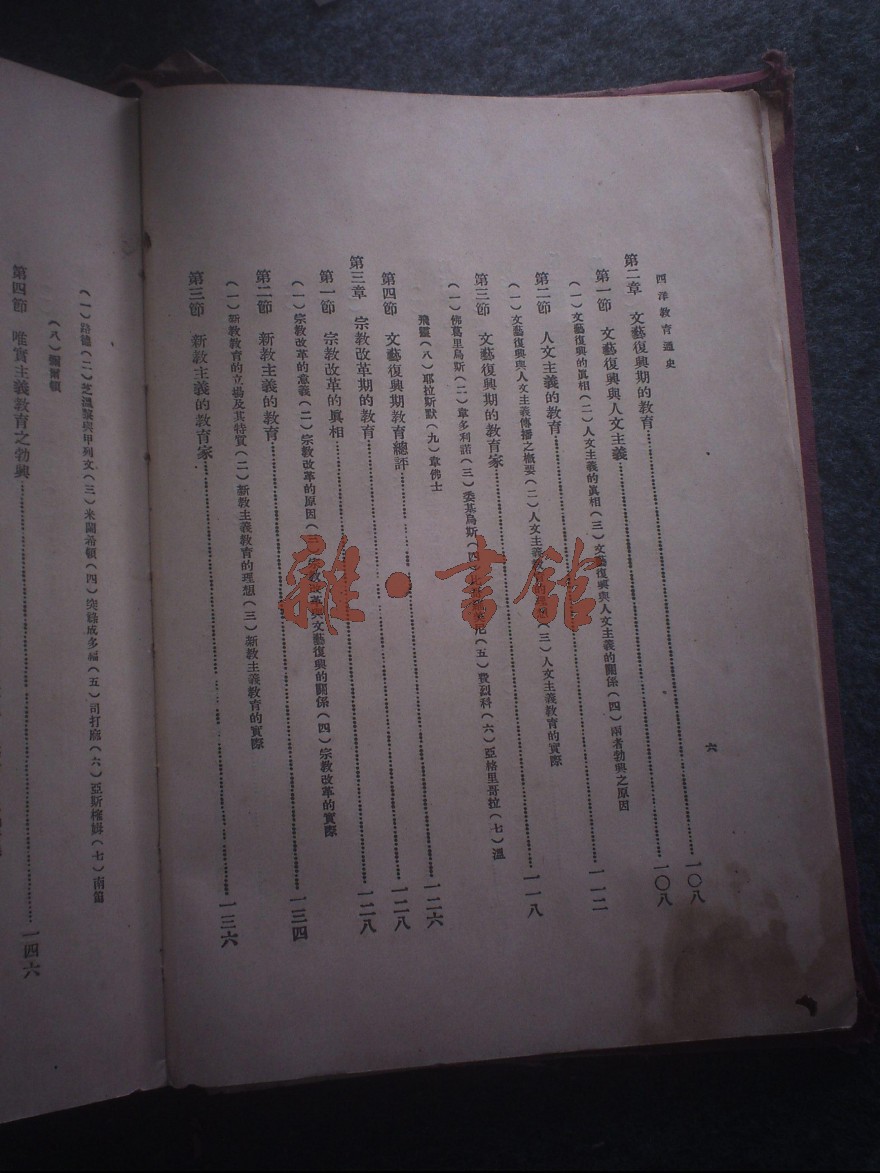 西洋教育通史
六
第二章 文藝復興期的教育……一〇八
第一節 文藝復興與人文主義……一〇八
(一)文藝復興的眞相(二)人文主義的眞相(三)文藝復興與人文主義的關係(四)兩者勃興之原因
第二節 人文主義的教育……一一二
(一)文藝復興與人文主義傳播之概要(二)人文主義教育的理想(三)人文主義教育的實際
第三節 文藝復興期的教育家……一一八
(一)佛葛里烏斯(二)韋多利諾(三)委基烏斯(四)(五)費烈科(六)亞格里哥拉(七)溫
飛靈(八)耶拉斯默(九)韋佛士
第四節 文藝復興期教育總評……一二六
第三章 宗教改革期的教育……一二八
第一節 宗教改革的眞相……一二八
(一)宗教改革的意義(二)宗教改革的原因(三)宗教改革與文藝復興的關係(四)宗教改革的實際
第二節 新教主義的教育……一三四
(一)新教教育的立場及其特質(二)新教主義教育的理想(三)新教主義教育的實際
第三節 新教主義的教育家……一三六
(一)路德(二)芝溫黎與甲列文(三)米蘭希頓(四)突綠成多福(五)司打廳(六)亞斯檜姆(七)南留
(八)彌爾頓
第四節 唯實主義教育之勃興……一四六
雜·書館